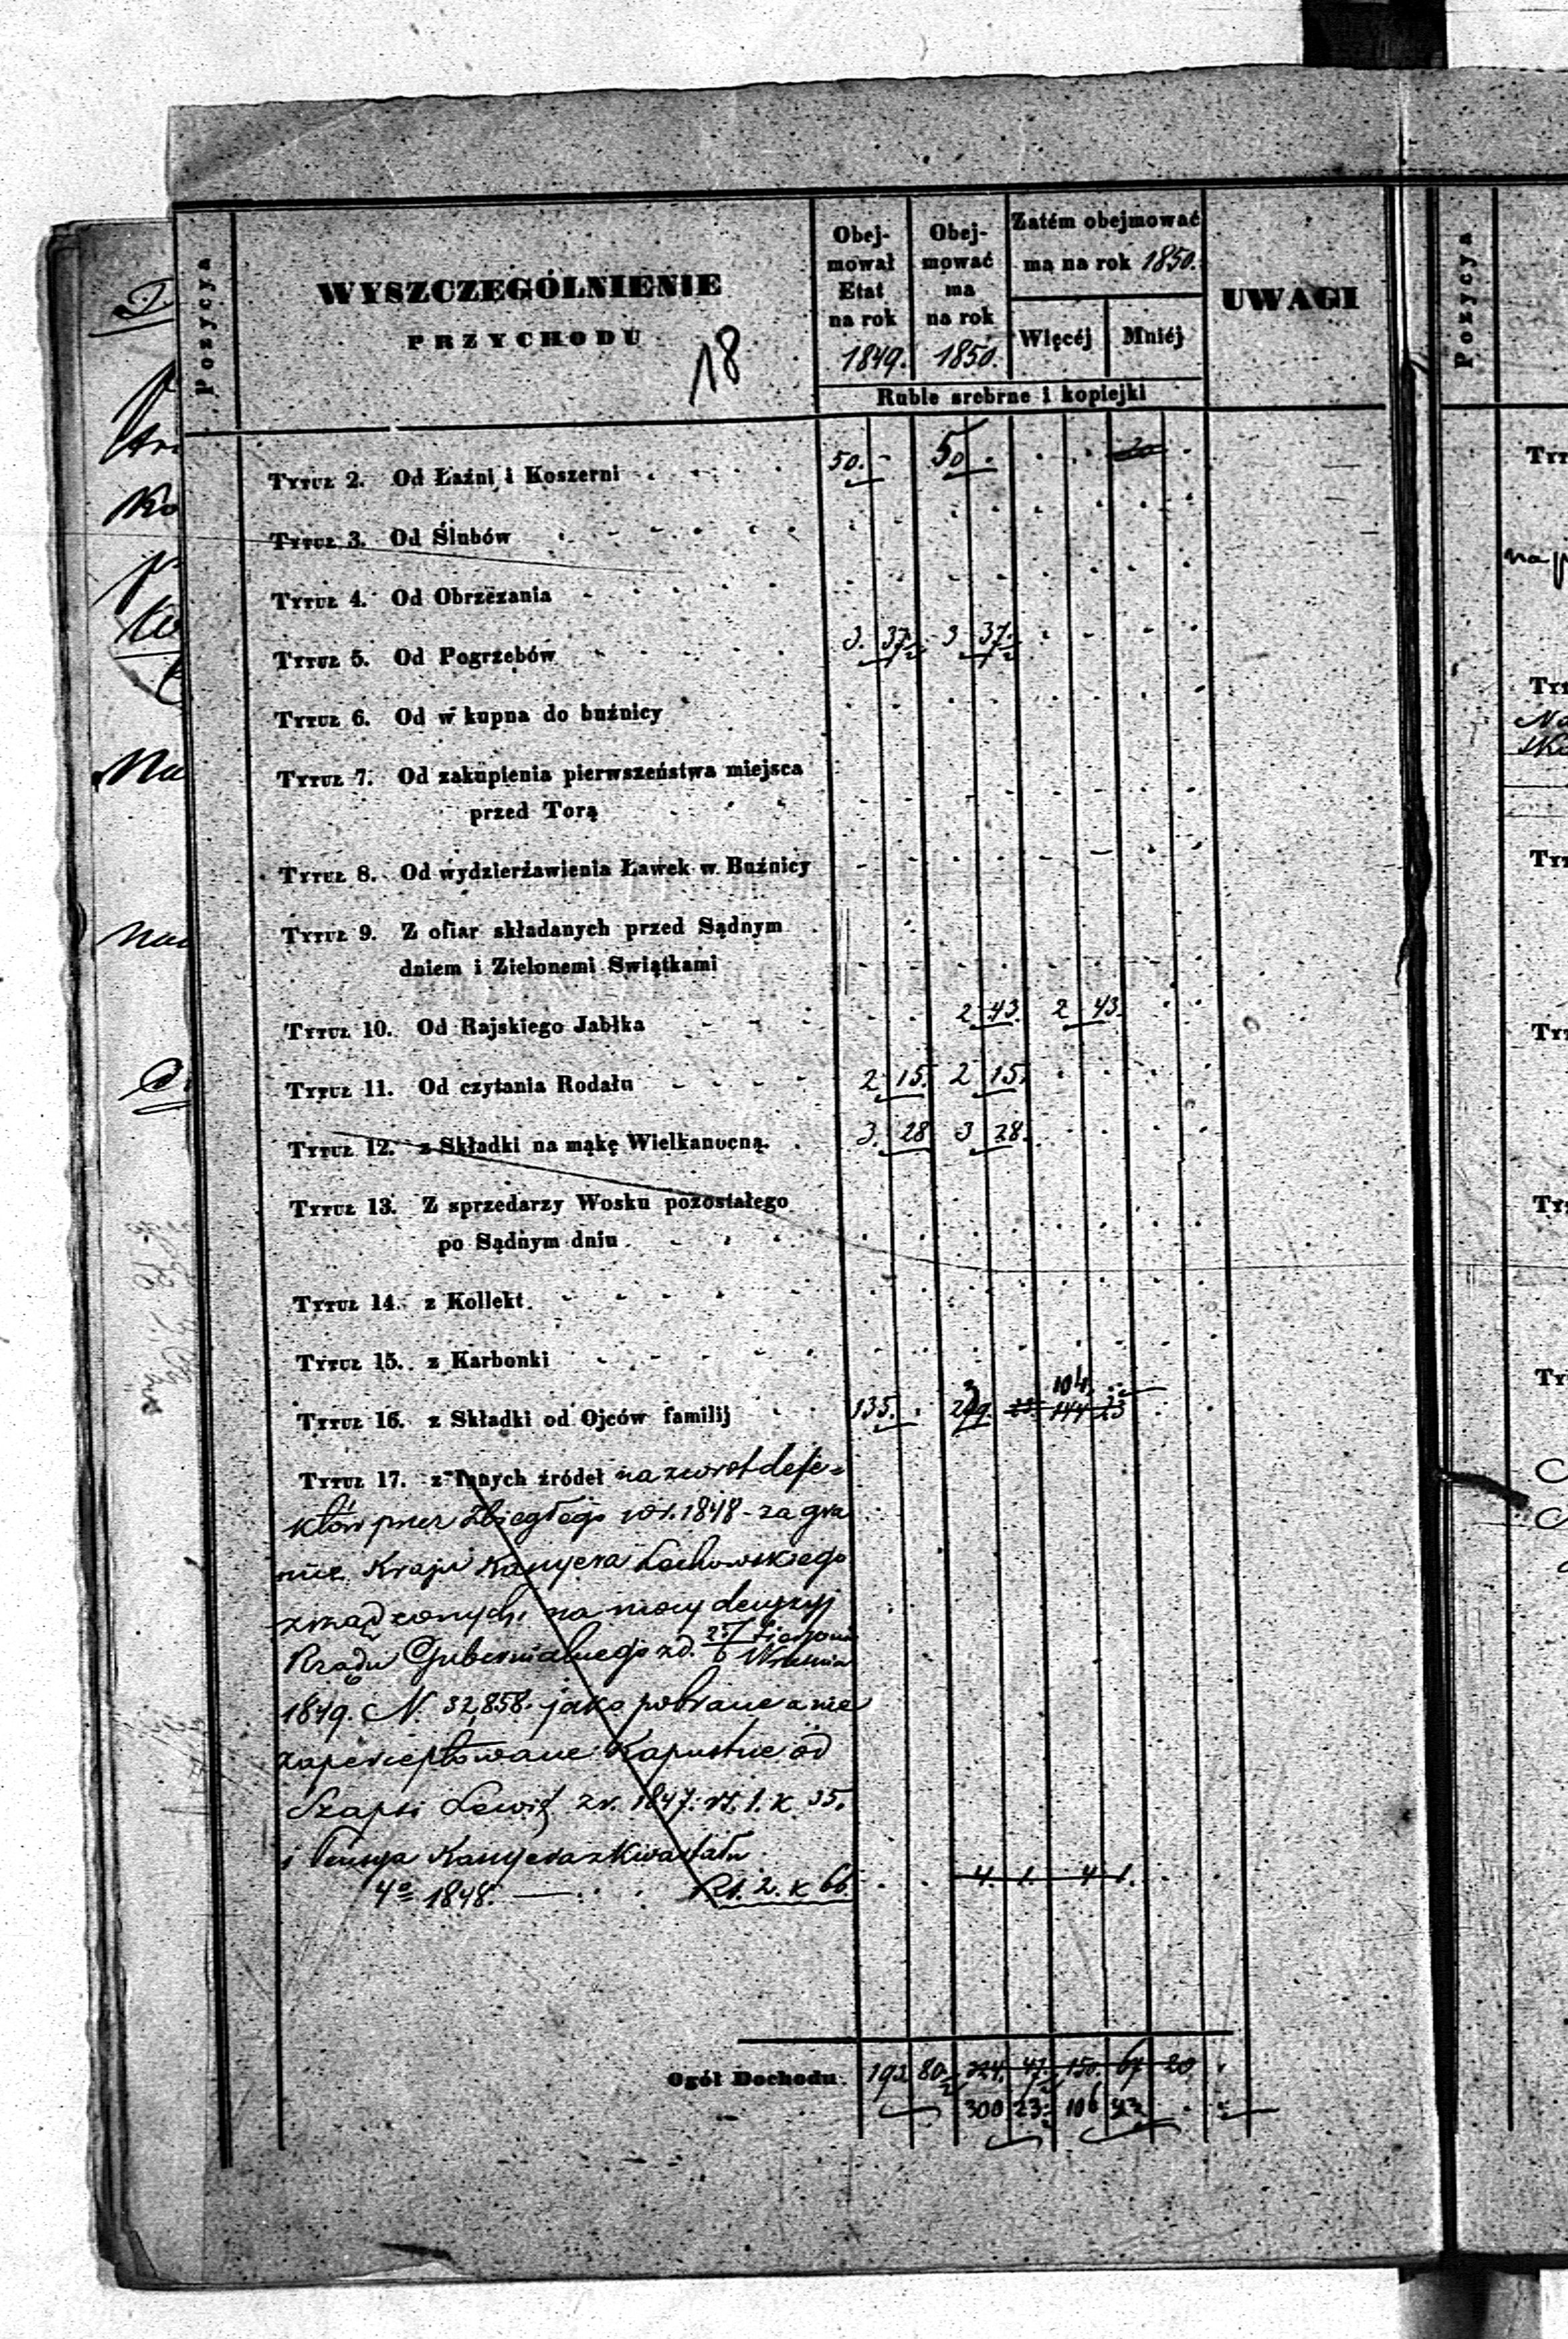 Pozycya
WYSZCZEGÓLNIENIE
PRZYCHODU
18
Obej-
mował
Etat
na rok
1849.
Obej-
mować
ma
na rok
1850.
Zatém obejmować
ma na rok 1850.
Więcéj
Mniéj
Ruble srebrne i kopiejki
UWAGI
Pozycya
Tytuł 2. Od Łaźni i Koszerni 50. - 50 - 20
Tytuł 3. Od Ślubów
Tytuł 4. Od Obrzezania
Tytuł 5. Od Pogrzebów 3. 37½ 3 37½
Tytuł 6. Od w kupna do buźnicy
Tytuł 7. Od zakupienia pierwszeństwa miejsca
przed Torą
Tytuł 8. Od wydzierżawienia Ławek w Buźnicy
Tytuł 9. Z ofiar składanych przed Sądnym
dniem i Zielonemi Swiątkami
Tytuł 10. Od Rajskiego Jabłka 2 43. 2 43.
Tytuł 11. Od czytania Rodału 2 15. 2 15.
Tytuł 12. z Składki na mąkę Wielkanocną 3. 28 3 28.
Tytuł 13. Z sprzedarzy Wosku pozostałego
po Sądnym dniu
Tytuł 14. z Kollekt
Tytuł 15. z Karbonki
104
Tytuł 16. z Składki od Ojców familij 135. 144 23
Tytuł 17. z Innych źródeł na zwrot defe-
któw przez zbiegłego w r. 1848 - za gra
nicę Kraju Kassyera Lachowskiego
zrządzonych, na mocy decyzyj
Rządu Gubernialnego z d. 25/6 Sierpnia Września
1849. N. 32,858. jako pobrane a nie
zaperceptowane Kapustne od
Szapsi Lewit z r. 1847. rs. 1. k 35.
i Pensya Kassyera z Kwartału
4º 1848. — Rs. 2. k 66. 4. 1. 4 1.
Ogół Dochodu. 193 80½ 324. 47½ 150. 67 20
300 23½ 106 43